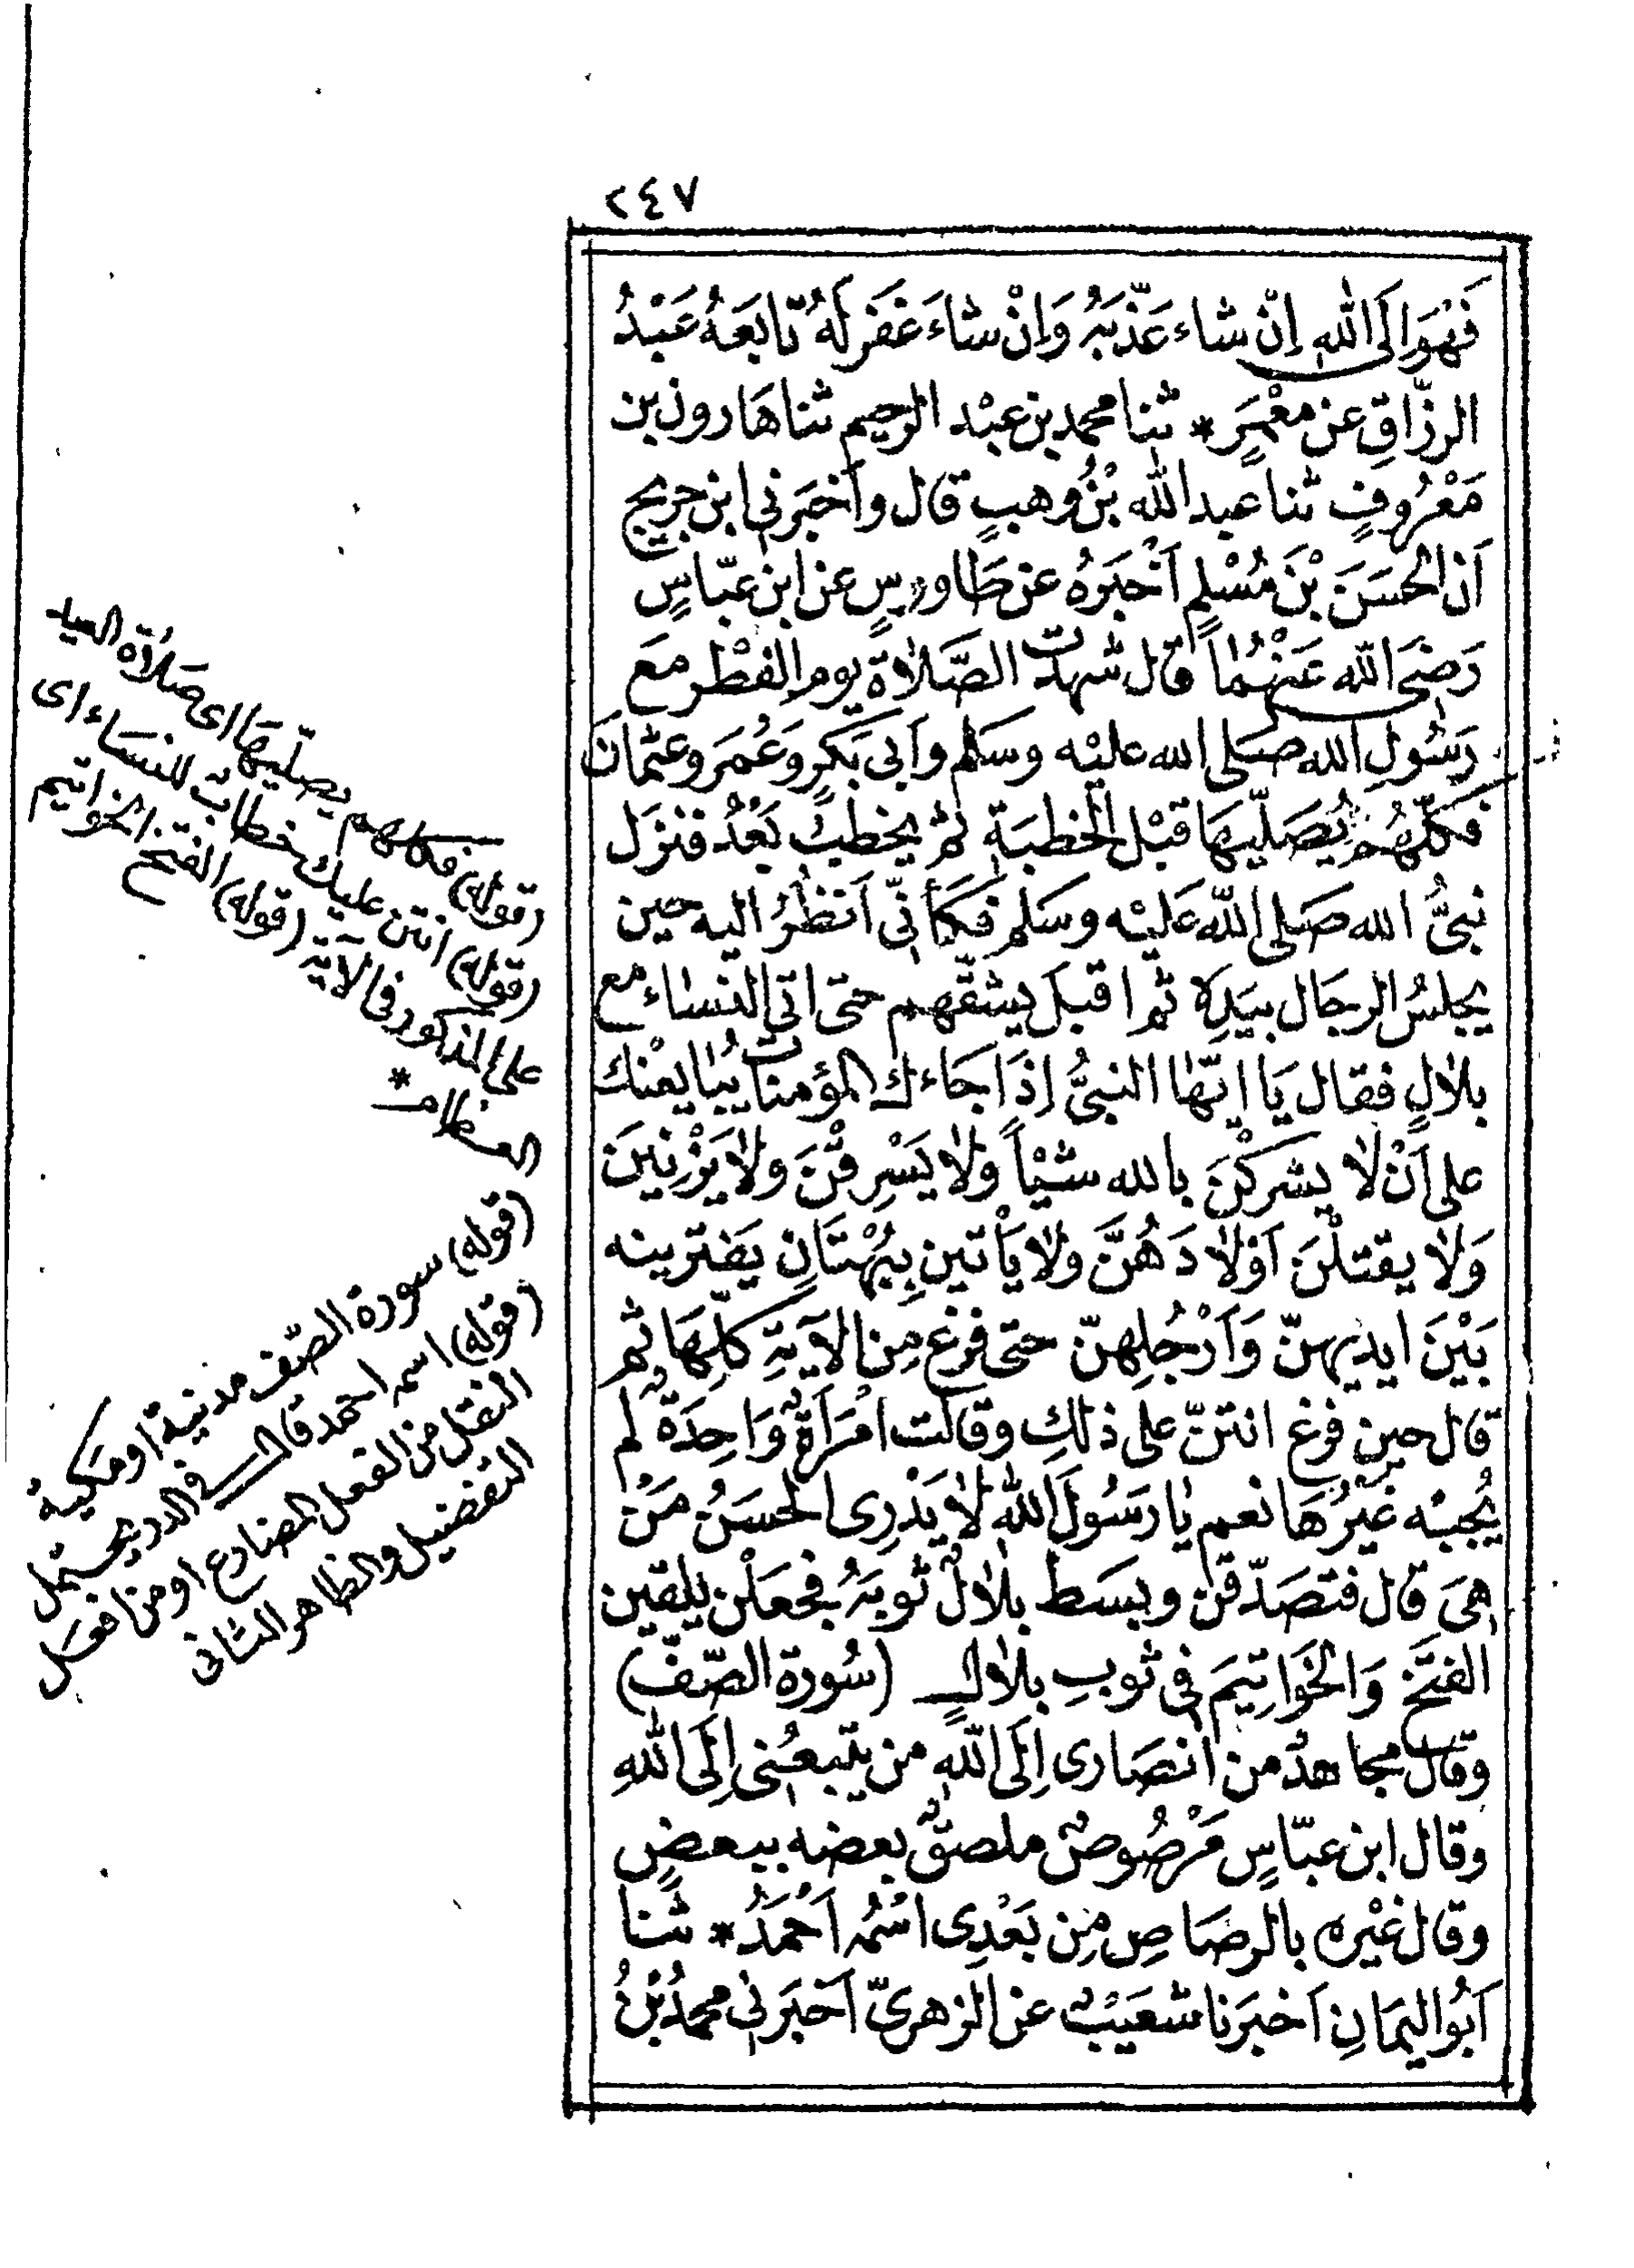 ٢٤٧
فَهُوَ اِلَى الله اِنْ شاء عَذَّبَهُ وَاِنْ شاءَ غَفَر لَهُ تَابَعَهُ عَبْدُ
الرزّاقِ عن مَعْمَرٍ * ثنا محمد بن عبْد الرحيم ثنا هَارون بن
مَعْرُوفٍ ثنا عبد الله بْنُ وهبٍ قال وأخبَرنى ابن جريج
اَن الحسَنَ بْنَ مُسْلِمٍ اَخْبَرَهُ عن طَاوسٍ عن ابن عبّاسٍ
رَضىَ الله عَنْهُمَا قال شهدت الصَّلَاة يوم الفطْر معَ
رَسُولِ الله صَلى الله عليْه وسَلم وأبى بَكرٍ وَعُمَر وعثمانَ
فكلّهُمْ يُصَلّيهَا قبْل الخطبَة ثمّ يخطبُ بَعْدُ فنزل
نبىُّ الله صَلى اللهُ عَليْه وسَلم فكَأنِّى اَنظُرُ اليه حين
يجلسُ الرجَال بيَدِهِ ثم اقبلَ يشقّهم حتى اتى النساء مع
بلالٍ فقال يَا ايّهَا النبىُّ اِذَا جَاءك المؤمنات يبَايعْنك
على اَنْ لا يشركْنَ بالله شيْأً ولا يَسْرِقْنَ ولا يَزْنِينَ
وَلا يقتلْنَ اَوْلادَهُنَّ ولا يَأتين بِبُهْتَانٍ يَفترينه
بَيْنَ ايديهنّ وَاَرْجُلِهنّ حتى فرغ مِن الآيَةِ كلّهَا ثم
قال حين فرغ انتنّ على ذلكِ وقالت امْرَأةٌ وَاحِدَةٌ لم
يُجبْه غيْرُهَا نعم يَا رَسُولَ الله لا يَدْرِى الحسَنُ مَنْ
هىَ قال فتصَدّقْن وبسَط بلالٌ ثوبَهُ فجعَلْن يلقين
الفتَخَ وَالخوَاتِيمَ فى ثوبِ بلالٍ (سُورة الصّفّ)
وقال مجاهدٌ من انصَارى اِلى اللهِ من يتبعُنى اِلَى اللهِ
وقال ابن عبّاسٍ مَرْصُوصٌ ملصَقٌ بعضه ببعضٍ
وقال غيْره بالرصَاصِ مِن بَعْدِى اسْمُه اَحْمَدُ * ثنا
اَبُو اليَمانِ اَخبَرنا شعَيْبٌ عن الزهرىّ اَخبَرنى محمدُ بْنُ
(قوله) فكلهم يصلّيهَا اى صَلاة العيد
(قوله) انتن عليك خطابٌ للنسَاء اى
على المذكور فى الآية (قوله) الفتخ الخواتيم
العظام *
(قوله) سورة الصّف مدنية او مكية
(قوله) اسمه احمد قال فى الدر يحتمل
النقل من الفعل المضارع او من افعل
التفضيل والظاهر الثانى